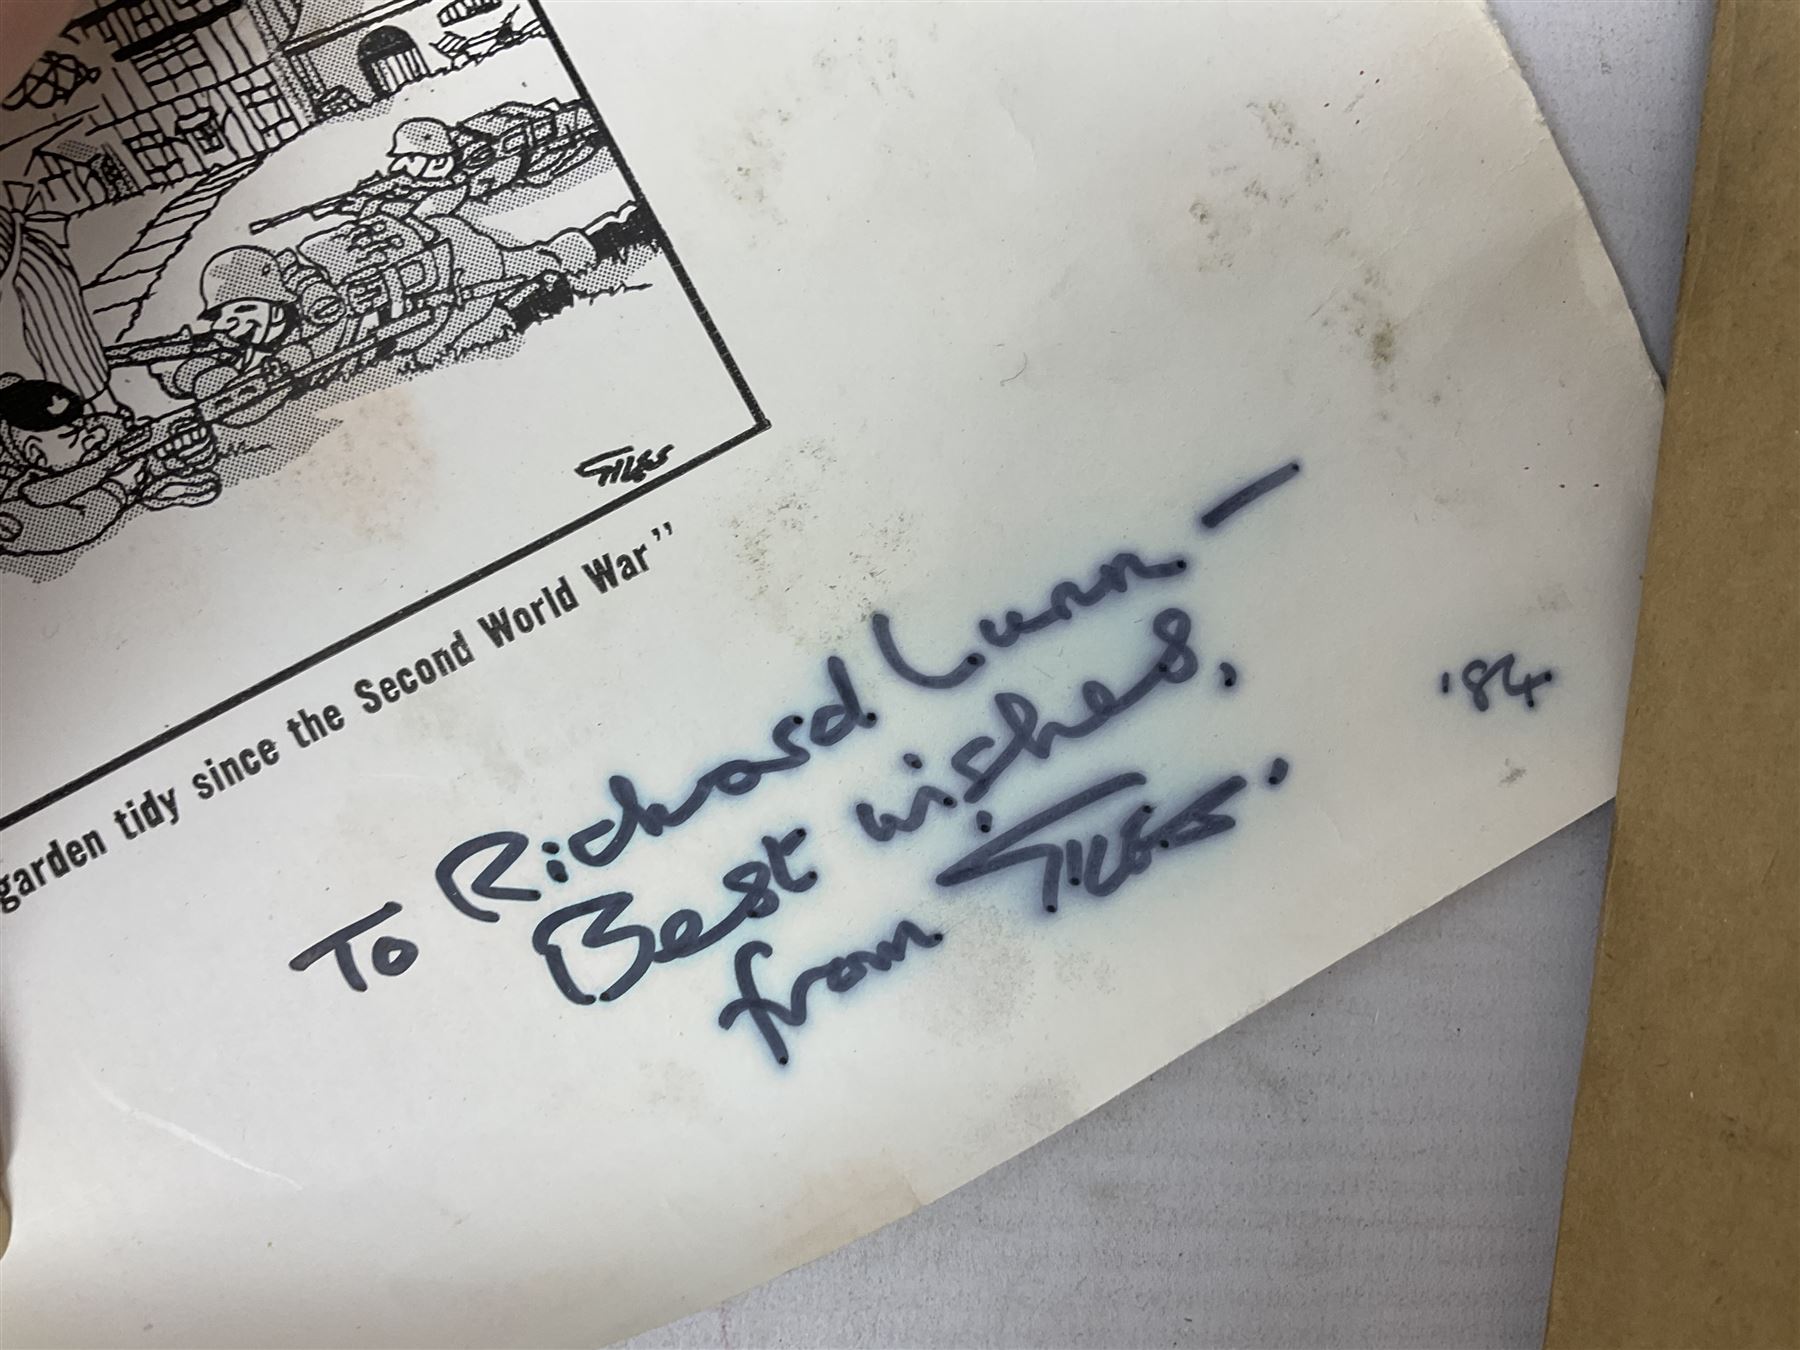 GILES
garden tidy since the Second World War"
To Richard Lunn —
Best wishes,
from GILES.
'84.